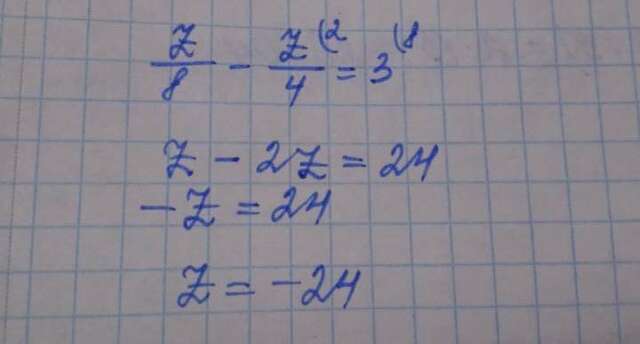 z/8 - z/4 (2 = 3 (8
z - 2z = 24
-z = 24
z = -24